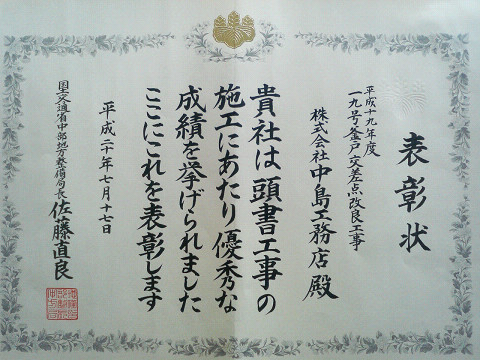 表彰状
平成十九年度
一九号釜戸交差点改良工事
株式会社中島工務店殿
貴社は頭書工事の
施工にあたり優秀な
成績を挙げられました
ここにこれを表彰します
平成二十年七月十七日
国土交通省中部地方整備局長 佐藤直良